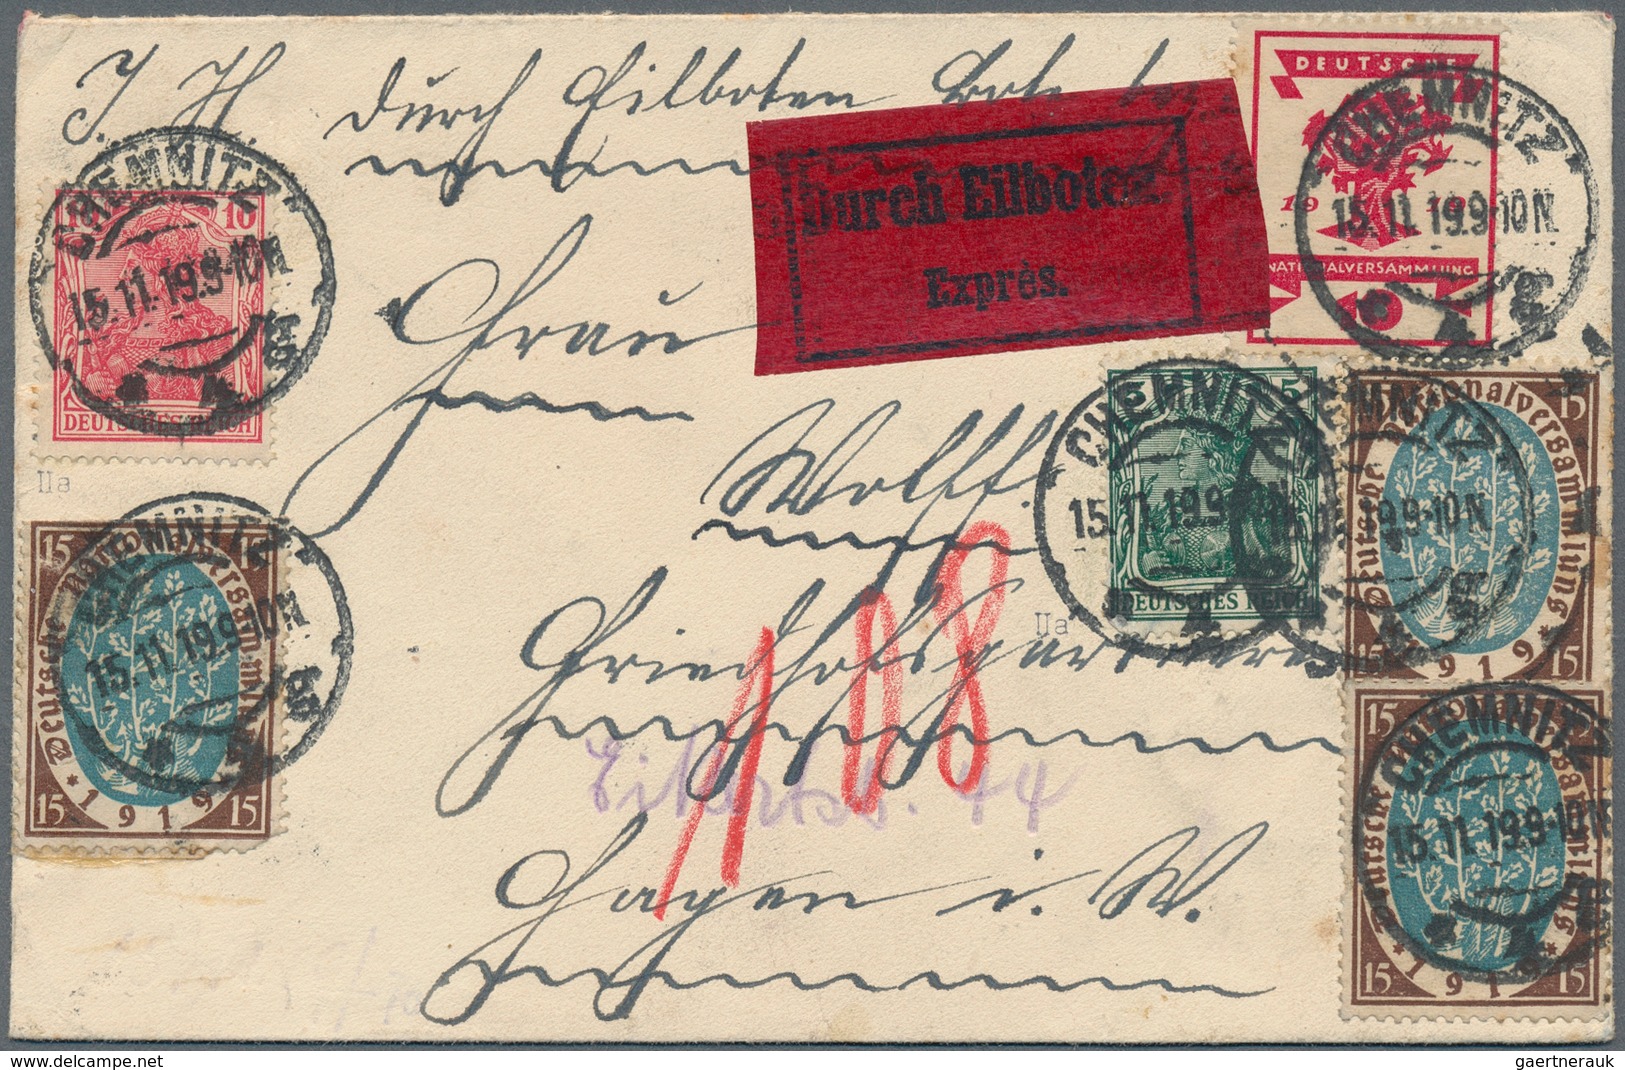 J. H. durch Eilboten Bote
Durch Eilboten
Exprès.
DEUTSCHE
19 19
NATIONALVERSAMMLUNG
10
CHEMNITZ
15.11.19.9-10N
10 10
DEUTSCHES REICH
CHEMNITZ
15.11.19.9-10N
* 4 g
IIa
Frau
Wolff
5 5
DEUTSCHES REICH
CHEMNITZ
15.11.19.9-10N
IIa
15 15
Deutsche Nationalversammlung
* 1919 *
15 15
CHEMNITZ
15.11.19.9-10N
15 15
Deutsche Nationalversammlung
* 1919 *
15 15
CHEMNITZ
9-10N
Friedhofsgärtnerei
108
Eilertstr. 44
Hagen i. W.
15 15
Deutsche Nationalversammlung
* 1919 *
15 15
CHEMNITZ
15.11.19.9-10N
delcampe.net
gaertnerauk